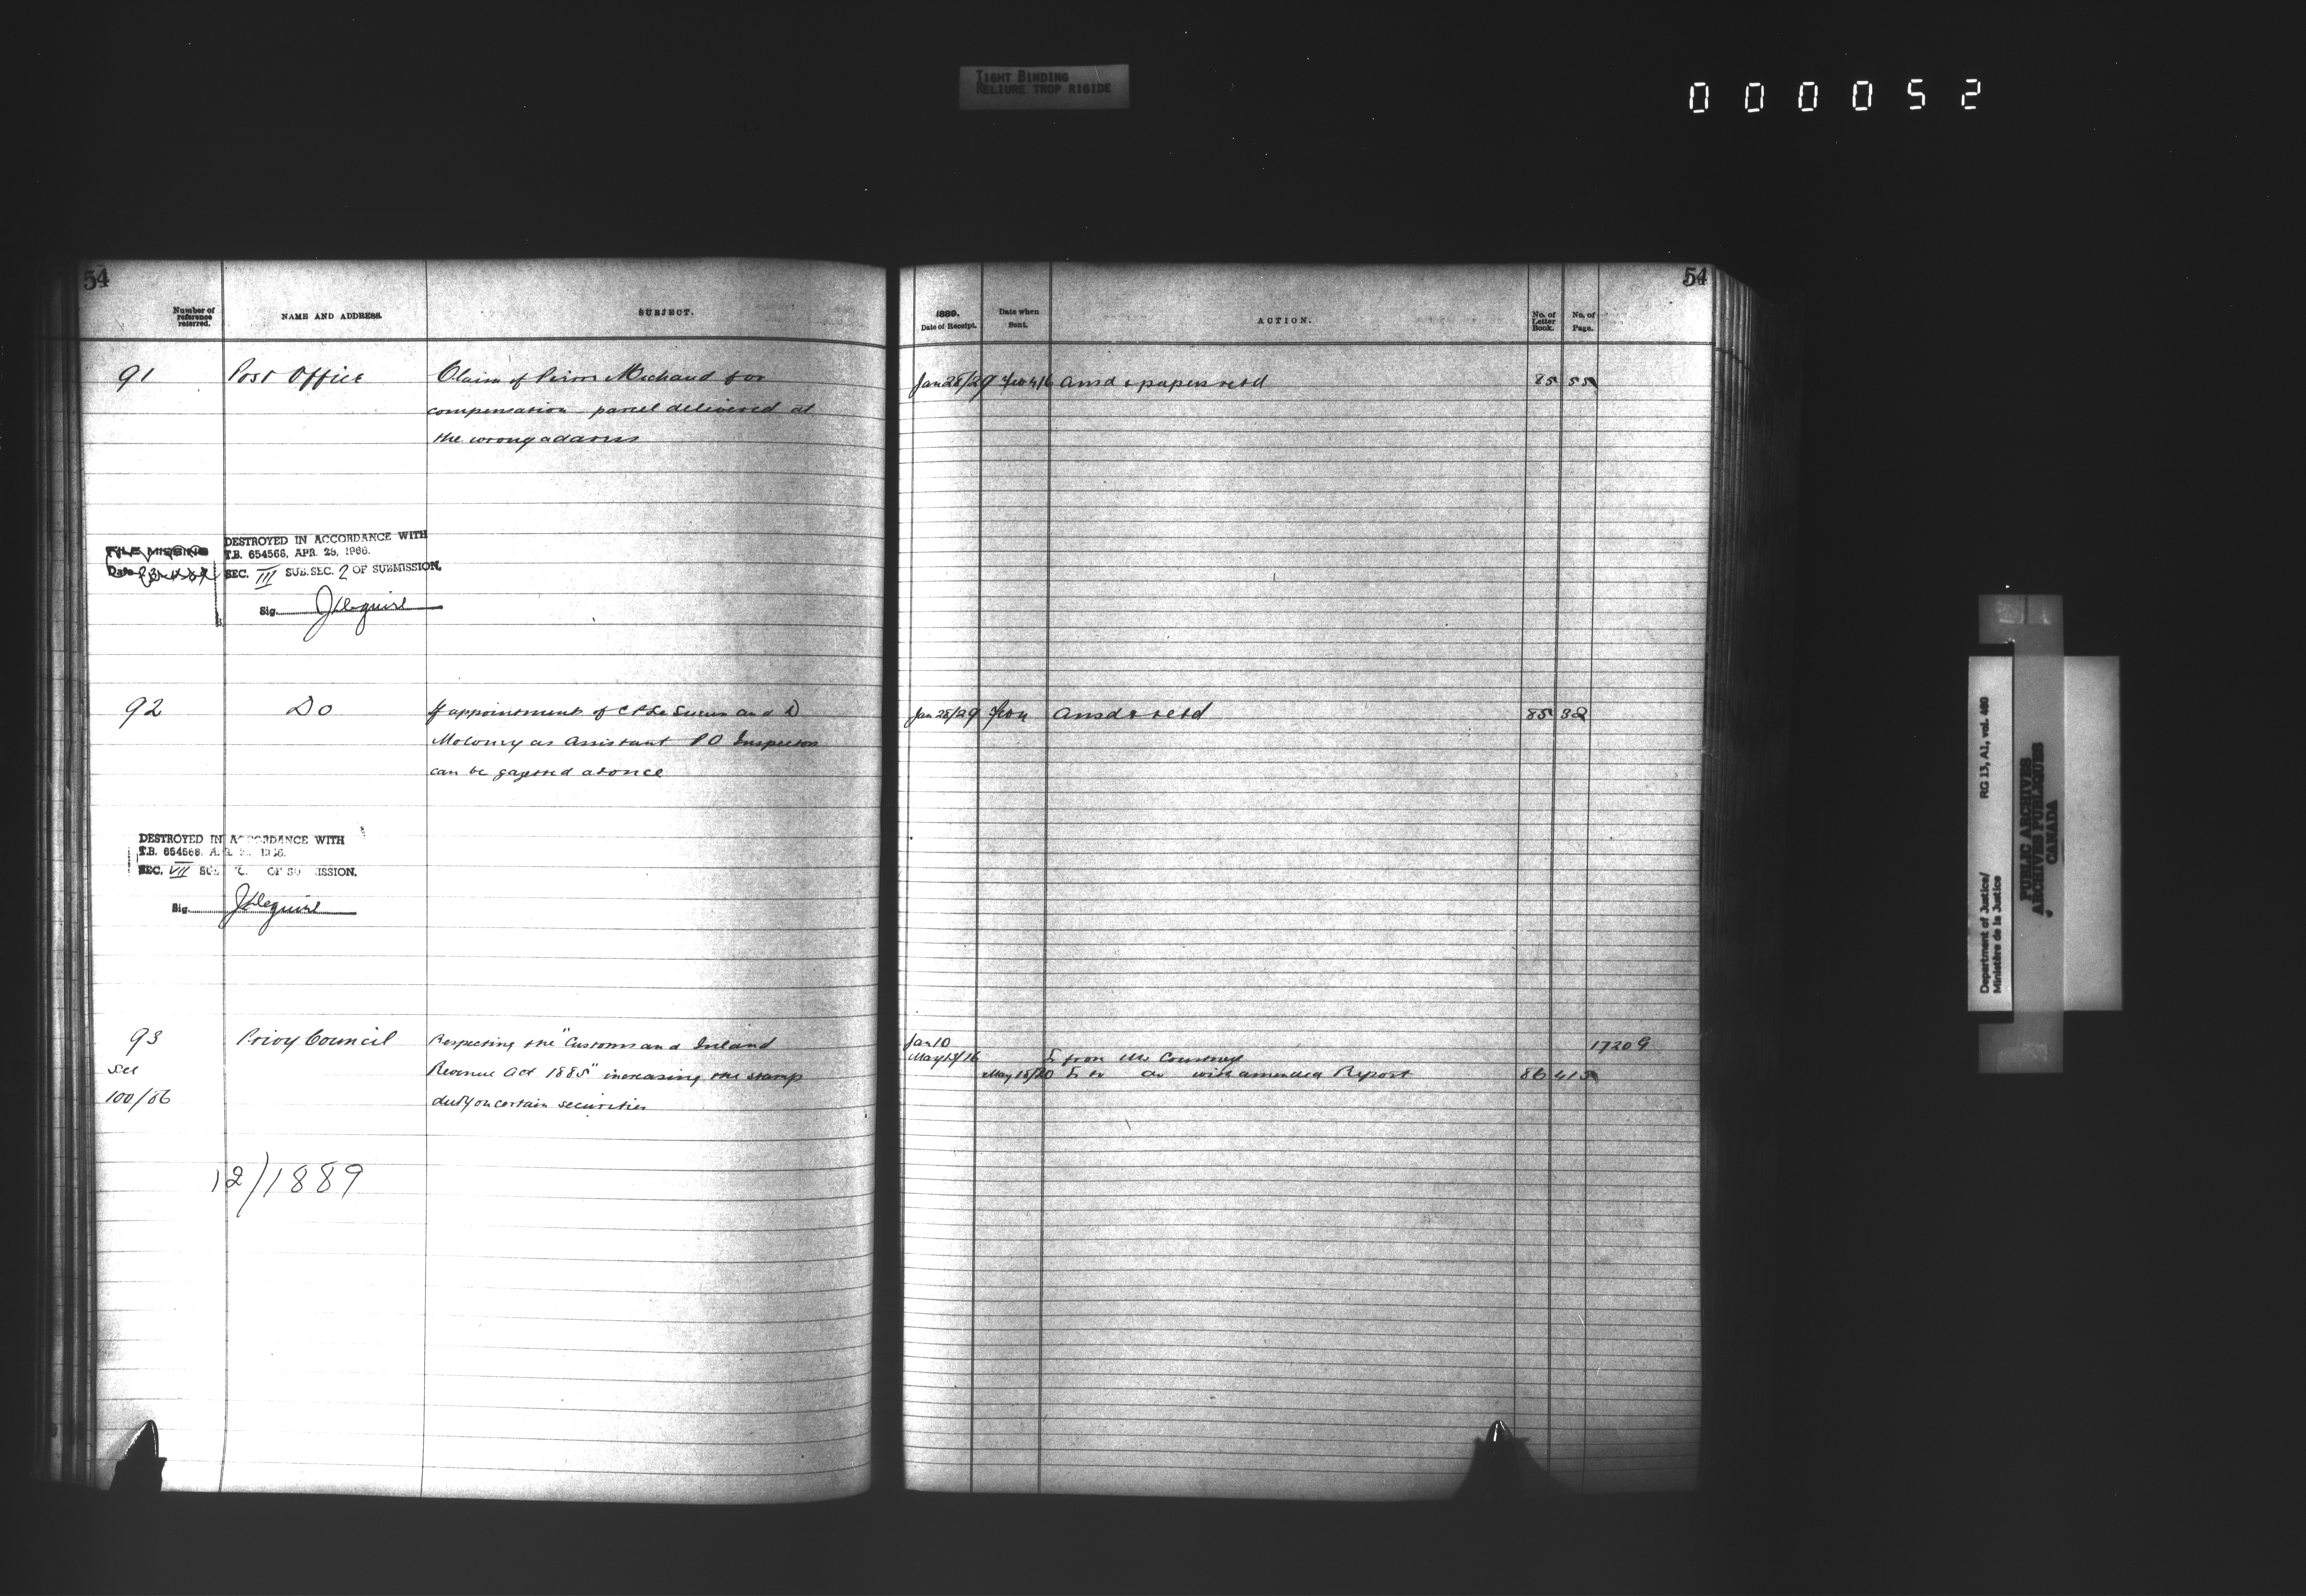 TIGHT BINDING
RELIURE TROP RIGIDE
000052
54
54
Number of reference referred.
NAME AND ADDRESS.
SUBJECT.
1889.
Date of Receipt.
Date when Sent.
ACTION.
No. of Letter Book.
No. of Page.
91 Post Office Claim of Michaud for Jan 28/29 Feb 4/6 Ansd & papers retd 85 55
compensation parcel delivered at
the wrong address
FILE MISSING
Date
DESTROYED IN ACCORDANCE WITH
T.B. 654566, APR. 28, 1966.
SEC. III SUB.SEC. 2 OF SUBMISSION.
Sig.
92 Do If appointment of and D Jan 28/29 Feb 4 Ansd & retd 85 32
Molony as Assistant P O Inspectors
can be gazetted at once
DESTROYED IN ACCORDANCE WITH
T.B. 654566,
SEC. VII
Sig.
93 Privy Council Respecting the "Customs and Inland Jan 10 17209
May 15/16 L from Mr Courtney
see Revenue Act 1885" increasing the stamp May 18/20 L to do with amended Report 86 415
100/86 duty on certain securities
12/1889
Department of Justice/ RG 13, A1, vol. 460
Ministère de la Justice
PUBLIC ARCHIVES
ARCHIVES PUBLIQUES
CANADA